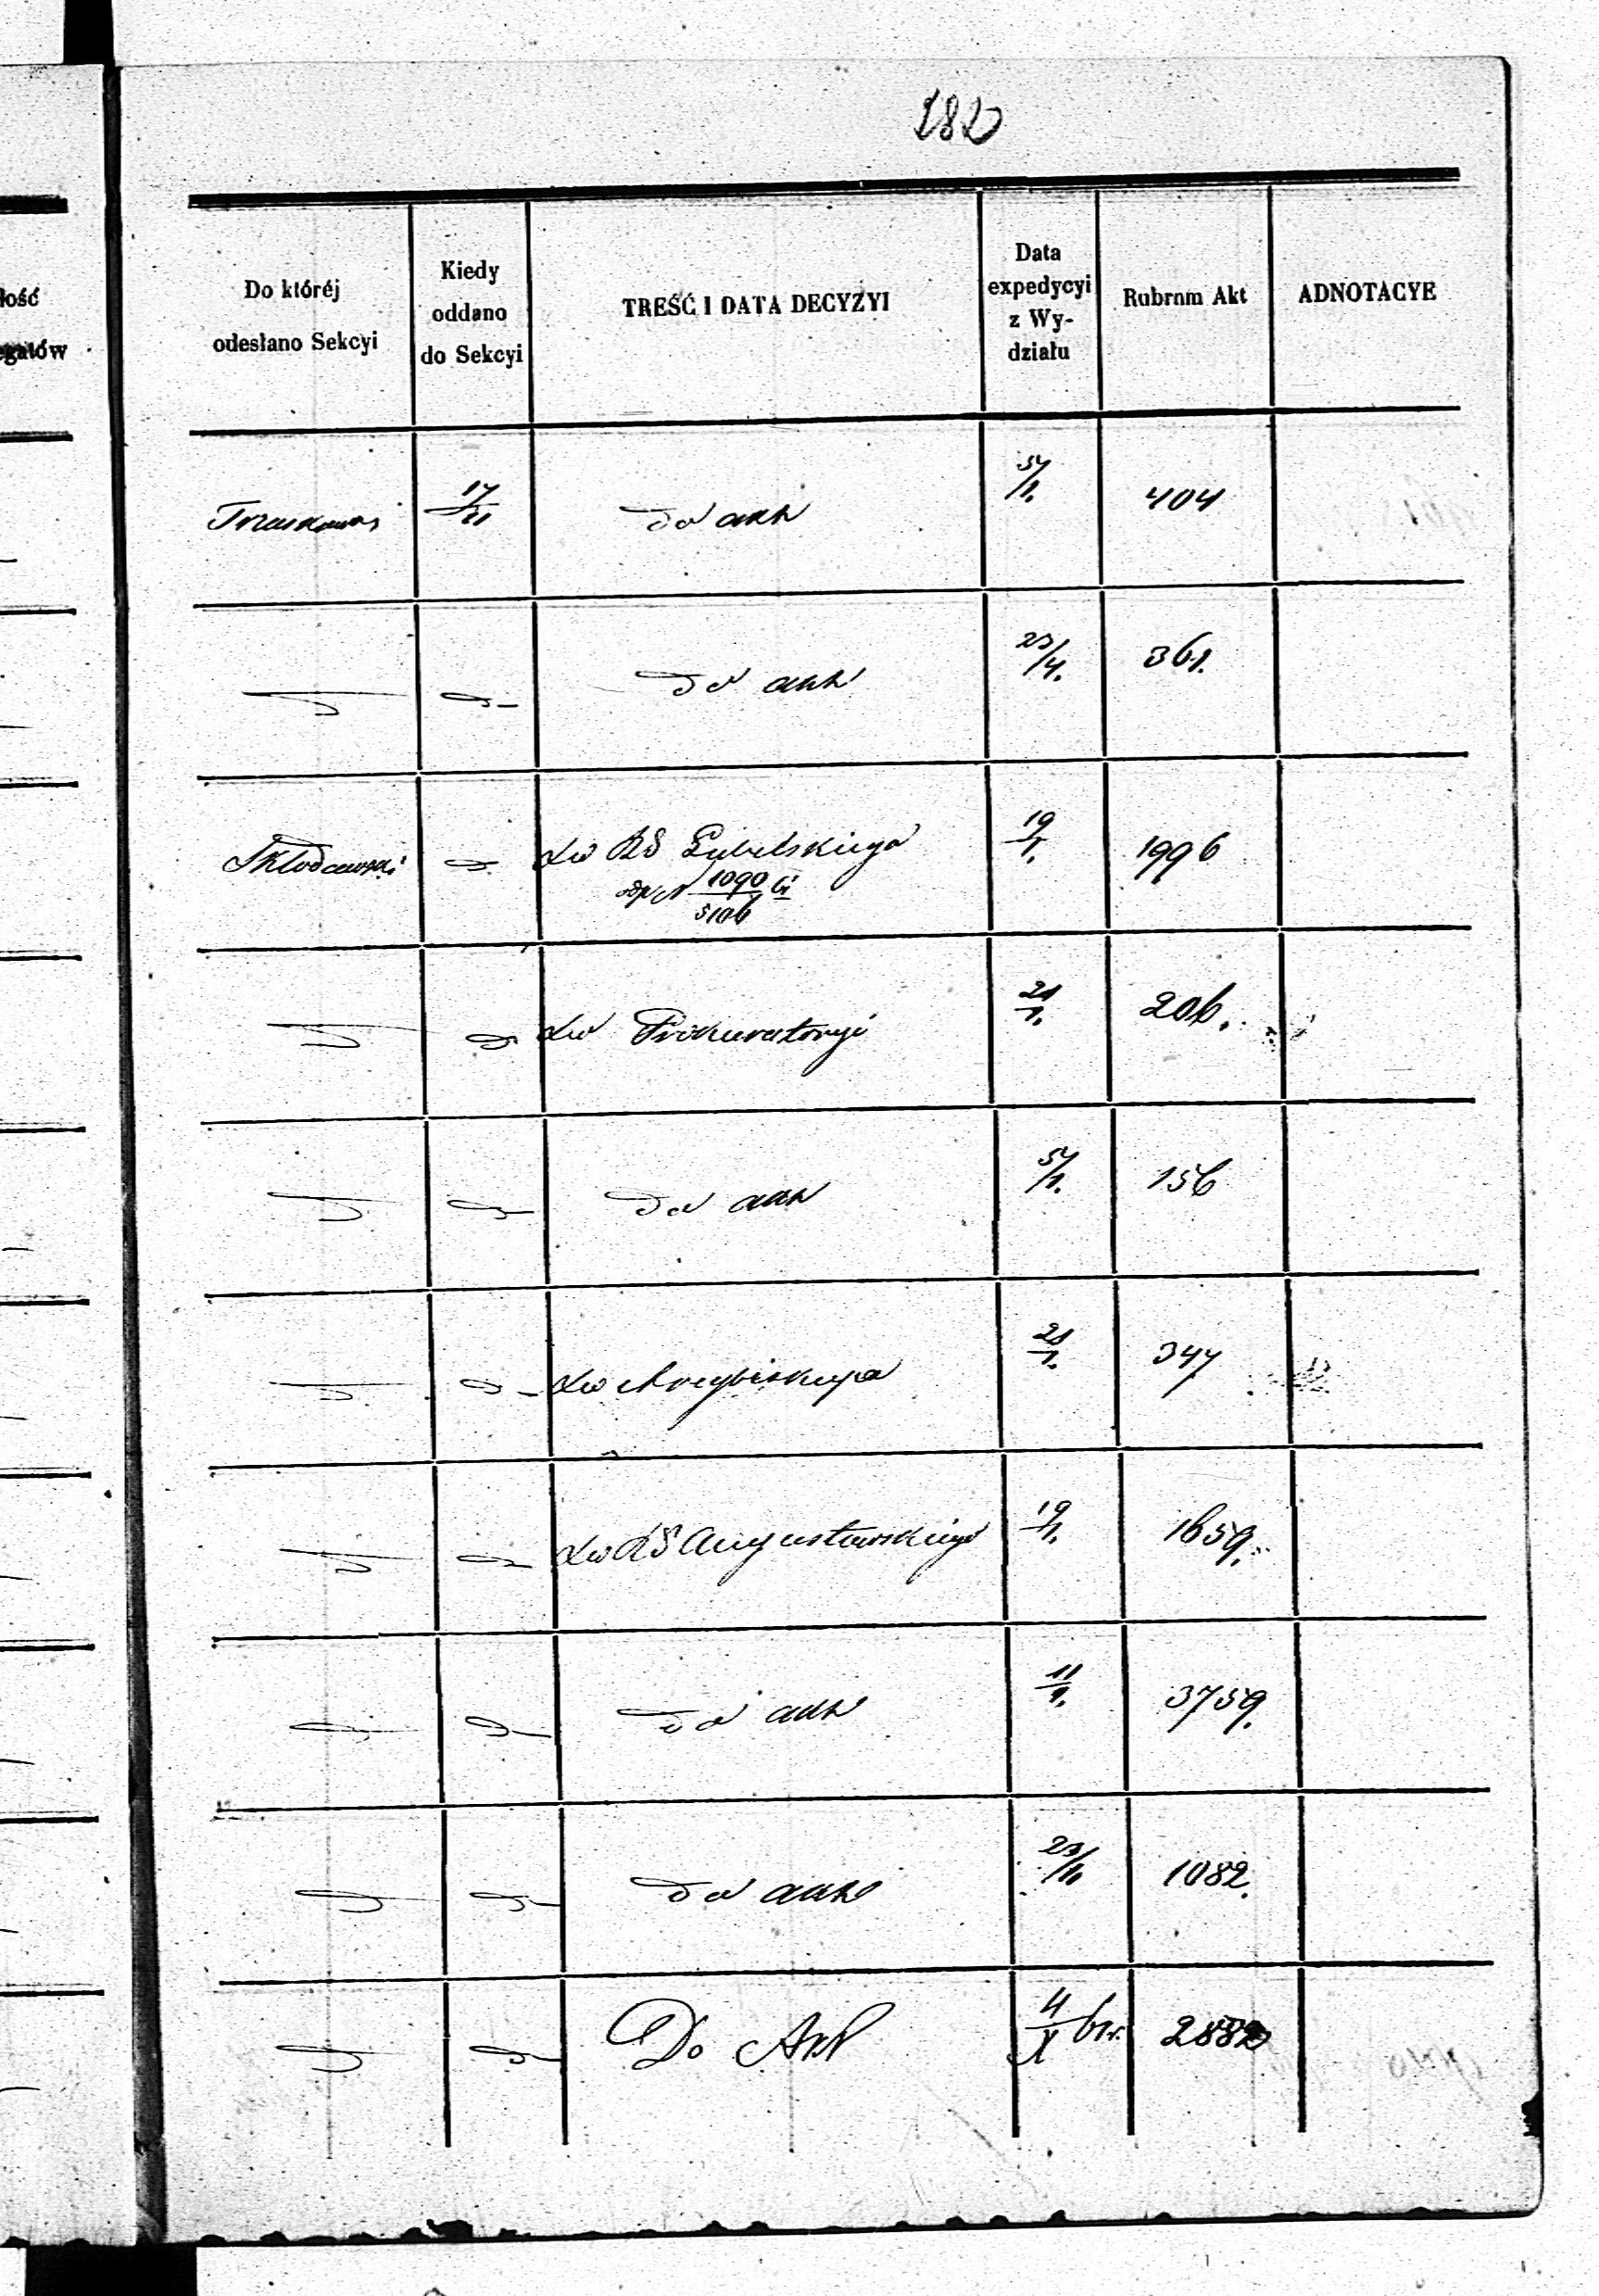 182
łość
egatów
Do któréj
odesłano Sekcyi
Kiedy
oddano
do Sekcyi
TREŚĆ I DATA DECYZYI
Data
expedycyi
z Wy-
działu
Rubrnm Akt
ADNOTACYE
17/21 do akt 404
do akt 23/4. 361.
Skłodowski do RG Lubelskiego 19/1. 1996
1090
5106
do Prokuratoryi 21/1. 206.
do akt 156
do Arcybiskupa 21/1. 347
do RG Augustowskiego 19/1. 1659.
do akt 11/1. 3759.
do akt 1082.
Do Akt 4/X 61r. 2882